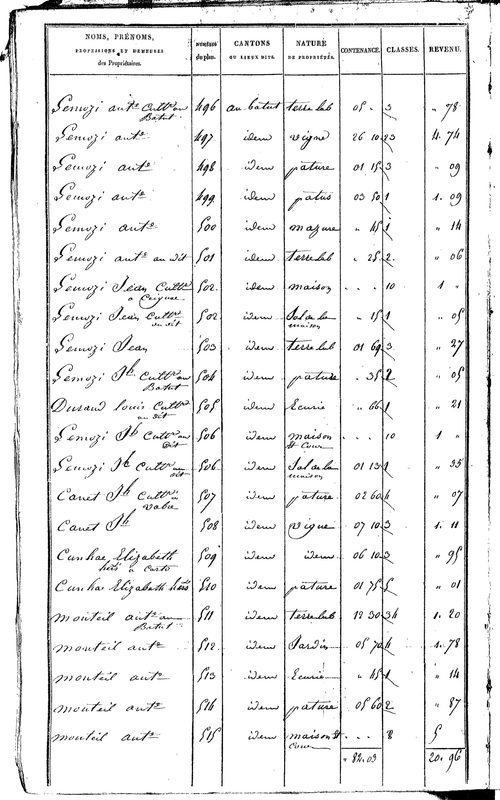 NOMS, PRÉNOMS, PROFESSIONS ET DEMEURES des Propriétaires. NUMÉROS du plan. CANTONS OU LIEUX DITS. NATURE DE PROPRIÉTÉS. CONTENANCE. CLASSES. REVENU.
Gemozi ant.e Cultr au Batut 496 au batut terre lab 05 - 3 " 78
Gemozi ant.e 497 idem vigne 26 10 23 4. 74
Gemozi ant.e 498 idem pature 01 15 3 " 09
Gemozi ant.e 499 idem patus 03 50 1 1. 09
Gemozi ant.e 500 idem mazure " 45 1 " 14
Gemozi ant.e au dit 501 idem terre lab " 25 2 " 06
Gemozi Jean Cultr a 502 idem maison . . . 10 1 "
Gemozi Jean Cultr au dit 502 idem Sol de la maison " 15 1 " 05
Gemozi Jean 503 idem terre lab 01 69 3 " 27
Gemozi Jh Cultr au Batut 504 idem pature " 35 2 " 05
Durand louis Cultr au dit 505 idem Ecurie " 66 1 " 21
Gemozi Jh Cultr au dit 506 idem maison et Cour . . . 10 1 "
Gemozi Jh Cultr au dit 506 idem Sol de la maison 01 13 1 " 35
Canet Jh Cultr a Vabre 507 idem pature 02 60 4 " 07
Canet Jh 508 idem vigne 07 10 3 1. 11
Cunhae Elizabeth hers a Carto 509 idem idem 06 10 3 " 95
Cunhae Elizabeth hers 510 idem pature 01 75 5 " 01
Monteil ant.e au Batut 511 idem terre lab 12 30 34 1. 20
monteil ant.e 512 idem Jardin 05 70 4 1. 78
monteil ant.e 513 idem Ecurie " 45 1 " 14
monteil ant.e 514 idem pature 05 60 2 " 87
monteil ant.e 515 idem maison et cour . . . 8 5
" 82. 03 20. 96